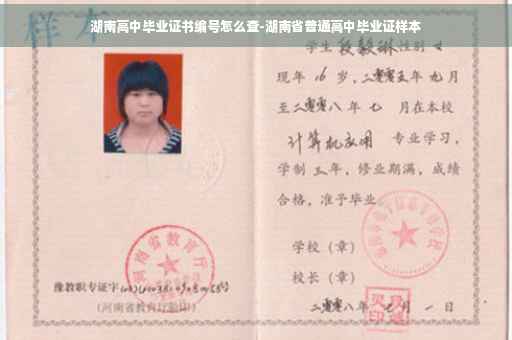 湖南高中毕业证书编号怎么查-湖南省普通高中毕业证样本
样本
学生 段毅琳 性别 女
现年 16 岁，二零零五年 九月
至二零零八年 七 月在本校
计算机应用 专业学习，
学制 三 年，修业期满，成绩
合格，准予毕业
学校（章）
校长（章）
二零零八年 七 月 一 日
河南省教育厅
豫教职专证字
（河南省教育厅验印）